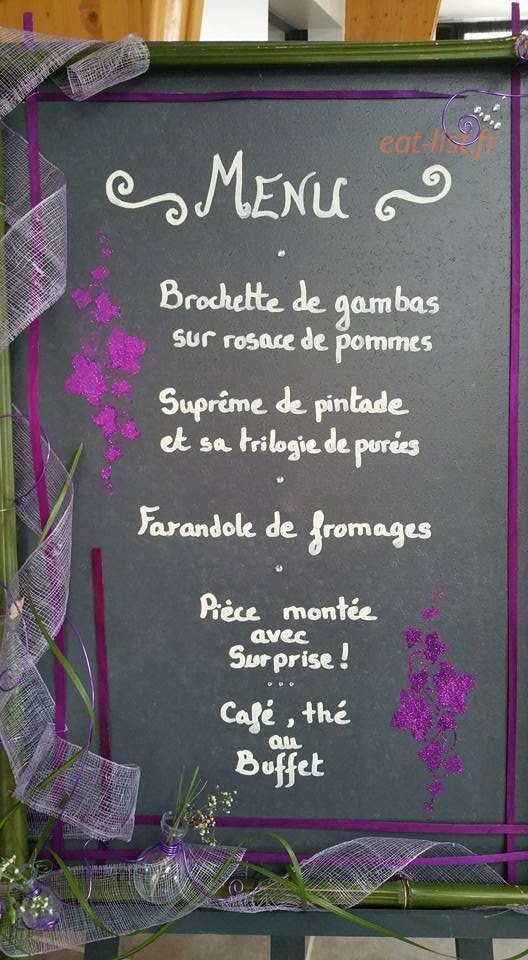 eat-list.fr
MENU
Brochette de gambas
sur rosace de pommes
Suprême de pintade
et sa trilogie de purées
Farandole de fromages
Pièce montée
avec
Surprise !
Café, thé
au
Buffet